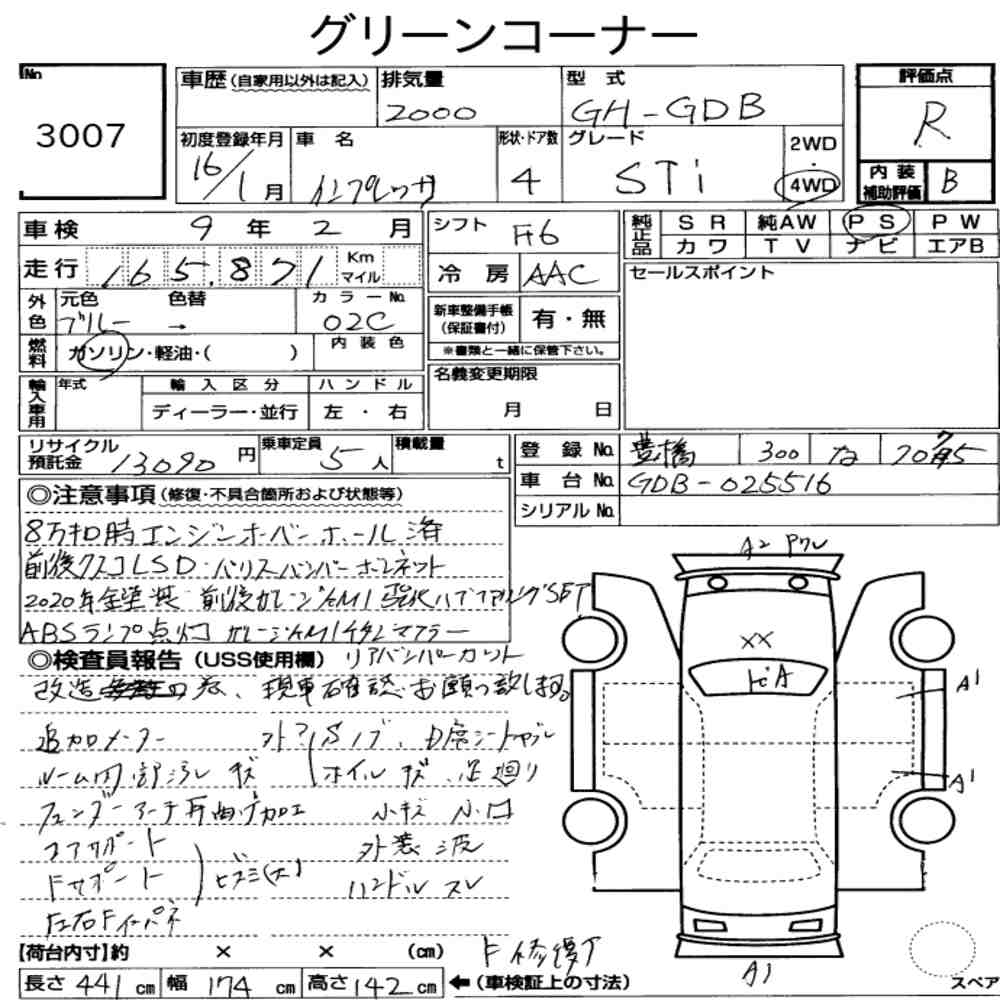 グリーンコーナー
No. 3007
車歴 (自家用以外は記入) 排気量 2000 型式 GH-GDB 評価点 R
初度登録年月 16/1月 車名 インプレッサ 形状・ドア数 4 グレード STi 2WD・4WD 内装補助評価 B
車検 9年 2月 シフト F6 純正品 SR 純AW PS PW
カワ TV ナビ エアB
走行 165,871 Km マイル 冷房 AAC セールスポイント
外色 元色 ブルー 色替 → カラーNo. 02C 新車整備手帳 (保証書付) 有・無
燃料 ガソリン・軽油・( ) 内装色 ※書類と一緒に保管下さい。
輸入車用 年式 輸入区分 ハンドル 名義変更期限
ディーラー・並行 左・右 月 日
リサイクル預託金 13090円 乗車定員 5人 積載量 t 登録No. 豊橋 300 な
車台No. GDB-025516
シリアルNo.
◎注意事項 (修復・不具合箇所および状態等)
8万キロ時エンジンオーバーホール済
前後クスコLSD・バリスバンパーボンネット
2020年全塗装 前後ガレージKM1 強化ハブベアリングSET
ABSランプ点灯 ガレージKM1チタンマフラー
◎検査員報告 (USS使用欄) リアバンパーカット
改造 現車確認、お願い致します。
追加メーター
ルーム内部汚レ キズ ホイルキズ 足廻り
フェンダーアーチ耳曲げ加工 小キズ 小凹
コアサポート 外装 波
Fサポート ヒズミ(大) ハンドル スレ
左右Fインパネ
【荷台内寸】約 × × (cm) F修復有
長さ 441 cm 幅 174 cm 高さ 142 cm ←(車検証上の寸法)
A2
××
ヒA
A1
A1
A1
スペア